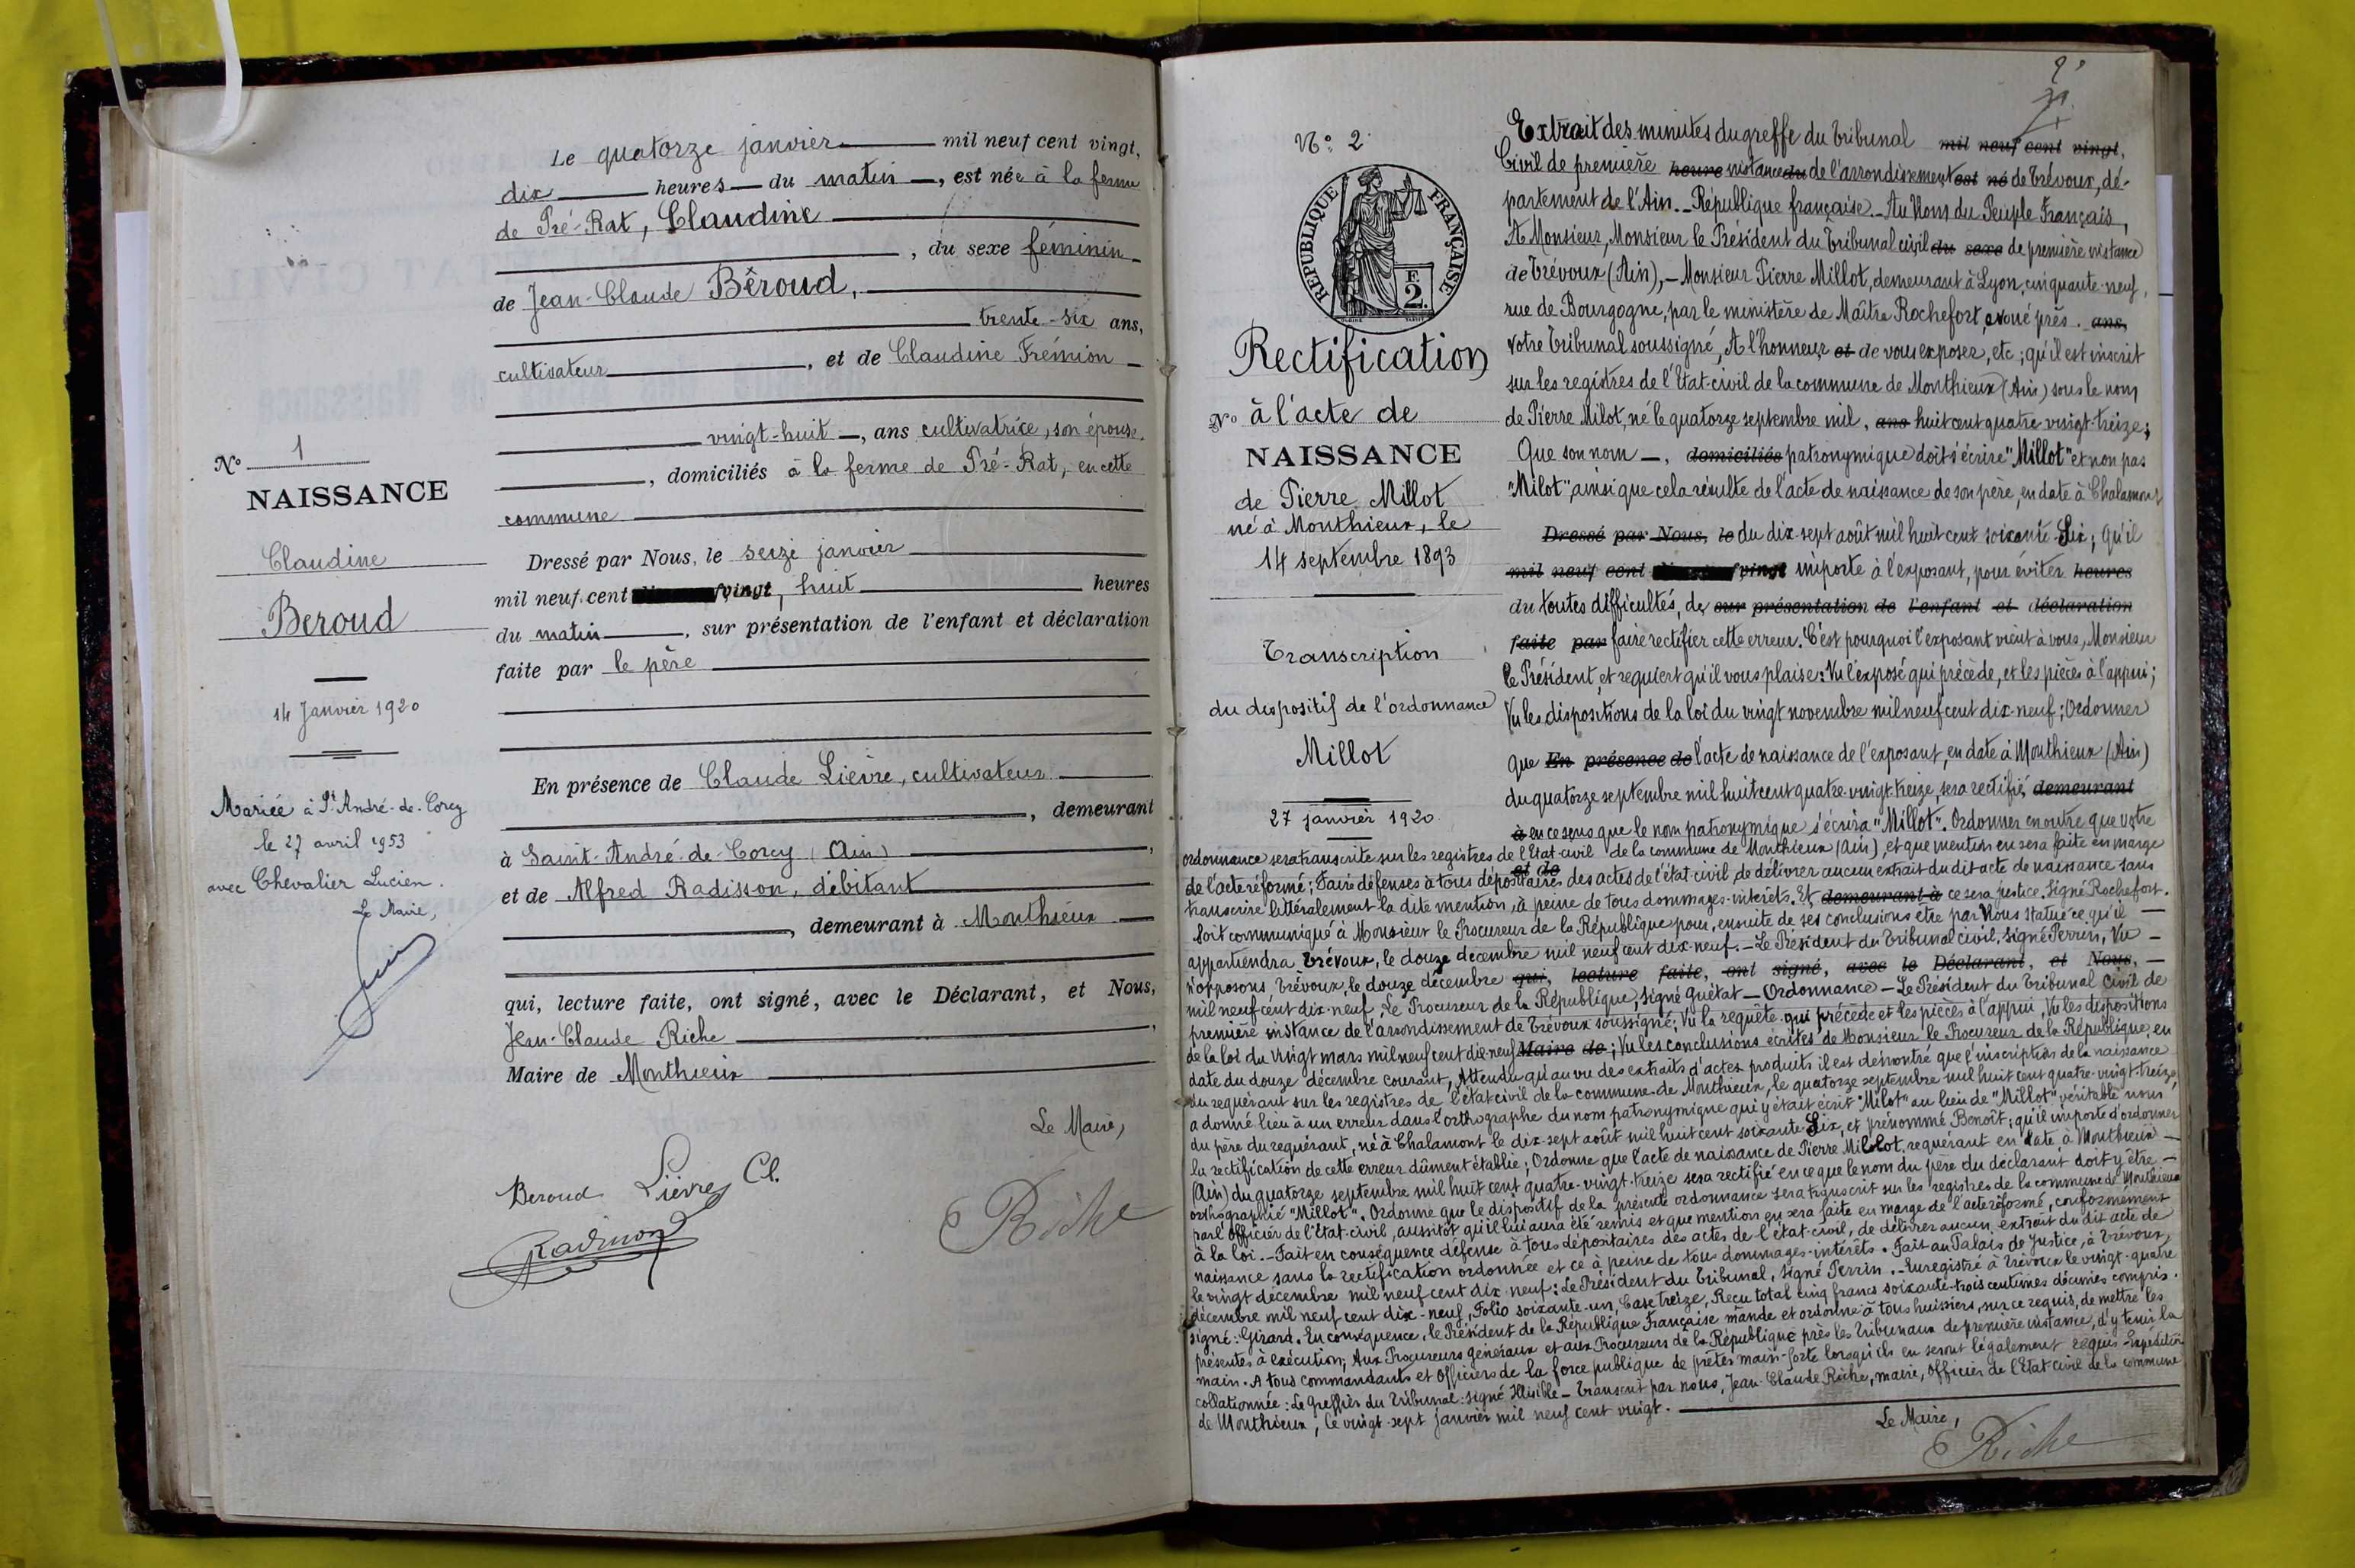 Le quatorze janvier mil neuf cent vingt,
dix heures du matin, est née à la ferme
de Pré-Rat, Claudine
, du sexe féminin
de Jean-Claude Béroud,
trente-six ans,
cultivateur, et de Claudine Frémion
vingt-huit, ans cultivatrice, son épouse.
, domiciliés à la ferme de Pré-Rat, en cette
commune
Dressé par Nous, le seize janvier
mil neuf cent vingt, huit heures
du matin, sur présentation de l'enfant et déclaration
faite par le père
En présence de Claude Lièvre, cultivateur
, demeurant
à Saint-André-de-Corcy (Ain),
et de Alfred Radisson, débitant
, demeurant à Monthieux
qui, lecture faite, ont signé, avec le Déclarant, et Nous,
Jean-Claude Riche,
Maire de Monthieux
Le Maire,
Beroud Lièvre Cl.
Radisson
Riche
N° 1
NAISSANCE
Claudine
Beroud
14 Janvier 1920
Mariée à St André-de-Corcy
le 27 avril 1953
avec Chevalier Lucien.
Le Maire,
N° 2
REPUBLIQUE FRANÇAISE
F.
2.
Rectification
N° à l'acte de
NAISSANCE
de Pierre Millot
né à Monthieux, le
14 septembre 1893
Transcription
du dispositif de l'ordonnance
Millot
27 janvier 1920
Extrait des minutes du greffe du Tribunal mil neuf cent vingt,
Civil de première heure instance du de l'arrondissement est né de Trévoux, dé-
partement de l'Ain. - République française. - Au Nom du Peuple Français,
A Monsieur, Monsieur le Président du Tribunal civil du sexe de première instance
de Trévoux (Ain), - Monsieur Pierre Millot, demeurant à Lyon, cinquante-neuf,
rue de Bourgogne, par le ministère de Maître Rochefort, avoué près. ans,
votre Tribunal soussigné, A l'honneur et de vous exposer, etc; qu'il est inscrit
sur les registres de l'Etat-civil de la commune de Monthieux (Ain) sous le nom
de Pierre Milot, né le quatorze septembre mil, ans huit cent quatre vingt-treize;
Que son nom, domiciliés patronymique doit s'écrire "Millot" et non pas
"Milot", ainsi que cela résulte de l'acte de naissance de son père, en date à Chalamont
Dressé par Nous, le du dix-sept août mil huit cent soixante-Six; Qu'il
mil neuf cent vingt importe à l'exposant, pour éviter heures
du toutes difficultés, de sur présentation de l'enfant et déclaration
faite par faire rectifier cette erreur. C'est pourquoi l'exposant vient à vous, Monsieur
le Président, et requiert qu'il vous plaise: Vu l'exposé qui précède, et les pièces à l'appui;
Vu les dispositions de la loi du vingt novembre mil neuf cent dix-neuf; Ordonner
que En présence de l'acte de naissance de l'exposant, en date à Monthieux (Ain)
du quatorze septembre mil huit cent quatre-vingt-treize, sera rectifié, demeurant
à en ce sens que le nom patronymique s'écrira "Millot". Ordonner en outre que votre
ordonnance sera transcrite sur les registres de l'Etat-civil de la commune de Monthieux (Ain), et que mention en sera faite en marge
et de
de l'acte réformé; Faire défenses à tous dépositaires des actes de l'état-civil, de délivrer aucun extrait du dit acte de naissance sans
transcrire littéralement la dite mention, à peine de tous dommages-intérêts. Et demeurant à ce sera justice. Signé Rochefort.
Soit communiqué à Monsieur le Procureur de la République pour, ensuite de ses conclusions être par Nous statué ce qu'il
appartiendra Trévoux, le douze décembre mil neuf cent dix-neuf. - Le Président du Tribunal civil, signé Perrin, Vu
n'opposons Trévoux, le douze décembre qui, lecture faite, ont signé, avec le Déclarant, et Nous,
mil neuf cent dix-neuf, Le Procureur de la République, signé Guétat - Ordonnance - Le Président du Tribunal Civil de
première instance de l'arrondissement de Trévoux soussigné; Vu la requête qui précède et les pièces à l'appui, Vu les dispositions
de la loi du vingt mars mil neuf cent dix-neuf Maire de; Vu les conclusions écrites de Monsieur le Procureur de la République, en
date du douze décembre courant, Attendu qu'au vu des extraits d'actes produits il est démontré que l'inscription de la naissance
du requérant sur les registres de l'état-civil de la commune de Monthieux, le quatorze septembre mil huit cent quatre-vingt-treize,
a donné lieu à un erreur dans l'orthographe du nom patronymique qui y était écrit "Milot" au lieu de "Millot" véritable nom
du père du requérant, né à Chalamont le dix-sept août mil huit cent soixante-Six, et prénommé Benoît; qu'il importe d'ordonner
la rectification de cette erreur dûment établie; Ordonne que l'acte de naissance de Pierre Millot, requérant en date à Monthieux
(Ain) du quatorze septembre mil huit cent quatre-vingt-treize sera rectifié en ce que le nom du père du déclarant doit y être
orthographié "Millot". Ordonne que le dispositif de la présente ordonnance sera transcrit sur les registres de la commune de Monthieux
par l'officier de l'Etat-civil, aussitôt qu'il lui aura été remis et que mention en sera faite en marge de l'acte réformé, conformément
à la loi. - Fait en conséquence défense à tous dépositaires des actes de l'état-civil, de délivrer aucun extrait du dit acte de
naissance sans la rectification ordonnée et ce à peine de tous dommages-intérêts. Fait au Palais de Justice, à Trévoux,
le vingt décembre mil neuf cent dix-neuf: Le Président du Tribunal, signé Perrin. - Enregistré à Trévoux le vingt-quatre
décembre mil neuf cent dix-neuf, Folio soixante-un, Case treize, Reçu total cinq francs soixante-trois centimes décimes compris.
signé: Girard. En conséquence, le Président de la République Française mande et ordonne à tous huissiers, sur ce requis, de mettre les
présentes à exécution; Aux Procureurs généraux et aux Procureurs de la République près les Tribunaux de première instance, d'y tenir la
main. A tous commandants et Officiers de la force publique de prêter main-forte lorsqu'ils en seront légalement requis Expédition
collationnée: Le Greffier du Tribunal: signé Illisible - Transcrit par nous, Jean-Claude Riche, maire, officier de l'Etat civil de la commune
de Monthieux, le vingt-sept janvier mil neuf cent vingt.
Le Maire,
Riche